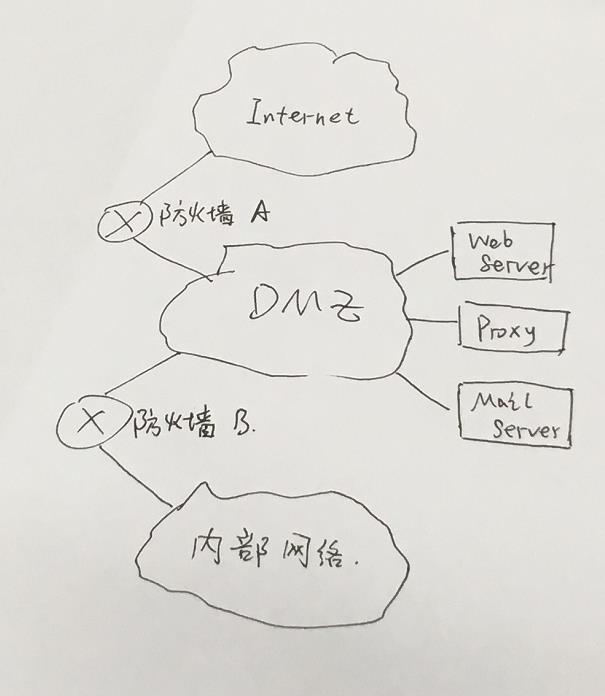 Internet
防火墙 A
Web
Server
DMZ
Proxy
Mail
Server
防火墙 B.
内部网络.